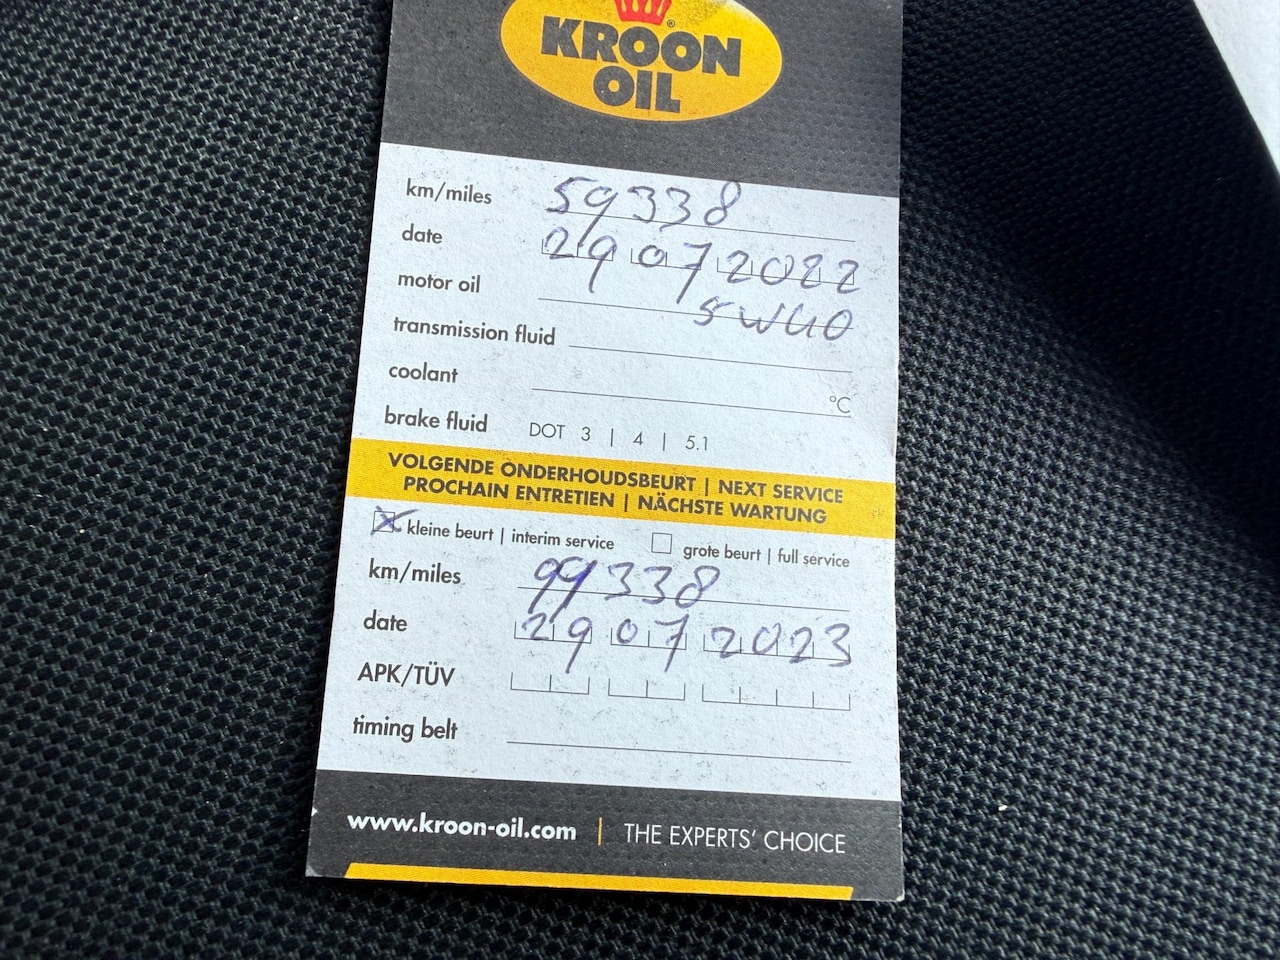 KROON
OIL
®
km/miles 59338
date 29 07 2022
motor oil 5W40
transmission fluid
coantant °C
brake fluid DOT 3 | 4 | 5.1
VOLGENDE ONDERHOUDSBEURT | NEXT SERVICE
PROCHAIN ENTRETIEN | NÄCHSTE WARTUNG
kleine beurt | interim service grote beurt | full service
km/miles 99338
date 29 07 2023
APK/TÜV
timing belt
www.kroon-oil.com | THE EXPERTS' CHOICE